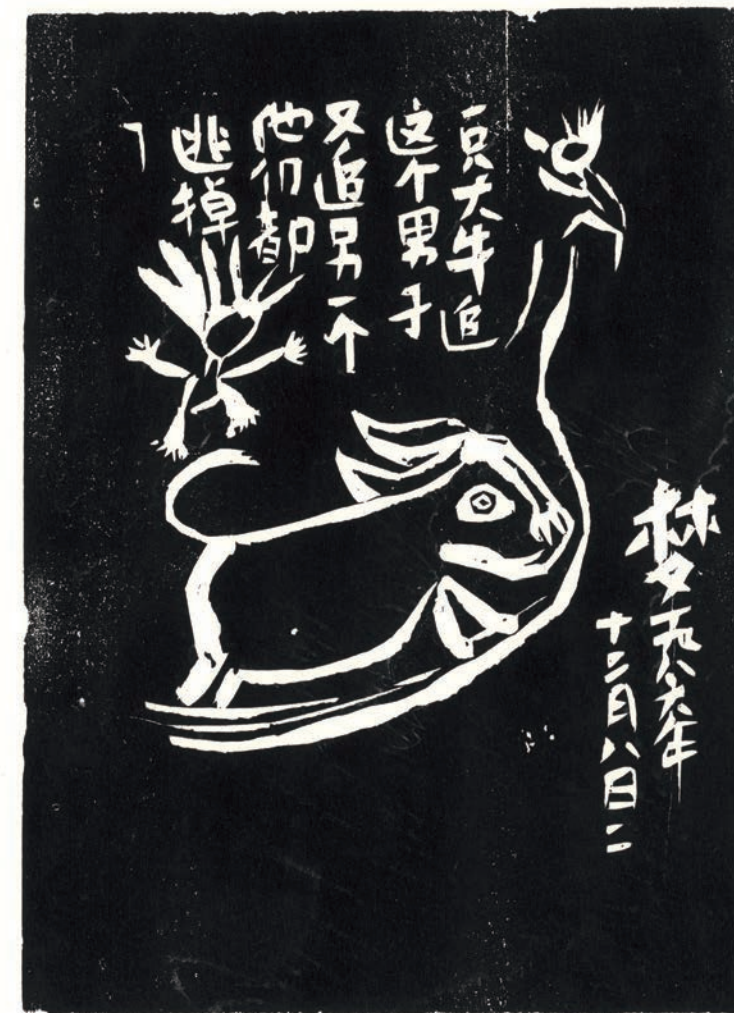 一只大牛追
这个男子
又追另一个
他们都
逃掉
了
梦一九八六年
十二月八日二